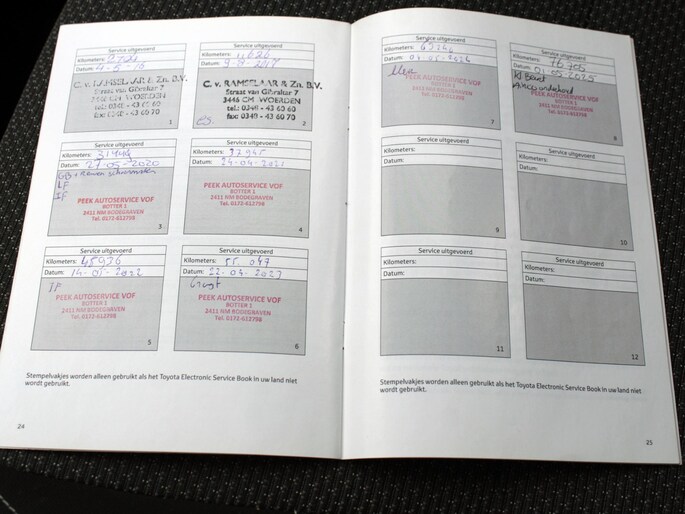 Service uitgevoerd
Kilometers:
Datum:
C. v. RAMSELAAR & Zn. B.V.
Straat van Gibraltar 7
3446 CM WOERDEN
tel.: 0348 - 43 60 60
fax: 0348 - 43 60 70
1
Service uitgevoerd
Kilometers:
Datum:
C. v. RAMSELAAR & Zn. B.V.
Straat van Gibraltar 7
3446 CM WOERDEN
tel.: 0348 - 43 60 60
fax: 0348 - 43 60 70
2
Service uitgevoerd
Kilometers:
Datum: 27-05-2020
LF
IF
PEEK AUTOSERVICE VOF
BOTTER 1
2411 NM BODEGRAVEN
Tel. 0172-612798
3
Service uitgevoerd
Kilometers: 37945
Datum: 24-04-2021
PEEK AUTOSERVICE VOF
BOTTER 1
2411 NM BODEGRAVEN
Tel. 0172-612798
4
Service uitgevoerd
Kilometers: 45936
Datum: 14-05-2022
IF
PEEK AUTOSERVICE VOF
BOTTER 1
2411 NM BODEGRAVEN
Tel. 0172-612798
5
Service uitgevoerd
Kilometers: 55.047
Datum: 22-04-2023
Groot
PEEK AUTOSERVICE VOF
BOTTER 1
2411 NM BODEGRAVEN
Tel. 0172-612798
6
Stempelvakjes worden alleen gebruikt als het Toyota Electronic Service Book in uw land niet
wordt gebruikt.
24
Service uitgevoerd
Kilometers:
Datum: 01-05-2024
PEEK AUTOSERVICE VOF
BOTTER 1
2411 NM BODEGRAVEN
Tel. 0172-612798
7
Service uitgevoerd
Kilometers: 76.705
Datum: 01-05-2025
Kl Beurt
Airco onderhoud
PEEK AUTOSERVICE VOF
BOTTER 1
2411 NM BODEGRAVEN
Tel. 0172-612798
8
Service uitgevoerd
Kilometers:
Datum:
9
Service uitgevoerd
Kilometers:
Datum:
10
Service uitgevoerd
Kilometers:
Datum:
11
Service uitgevoerd
Kilometers:
Datum:
12
Stempelvakjes worden alleen gebruikt als het Toyota Electronic Service Book in uw land niet
wordt gebruikt.
25